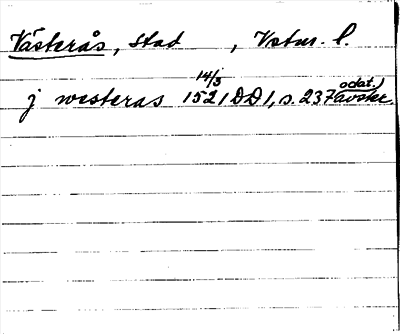 Västerås, stad , Vstm. l.
j westeras 14/3 1521 DD1, s. 237 odat.) avskr.